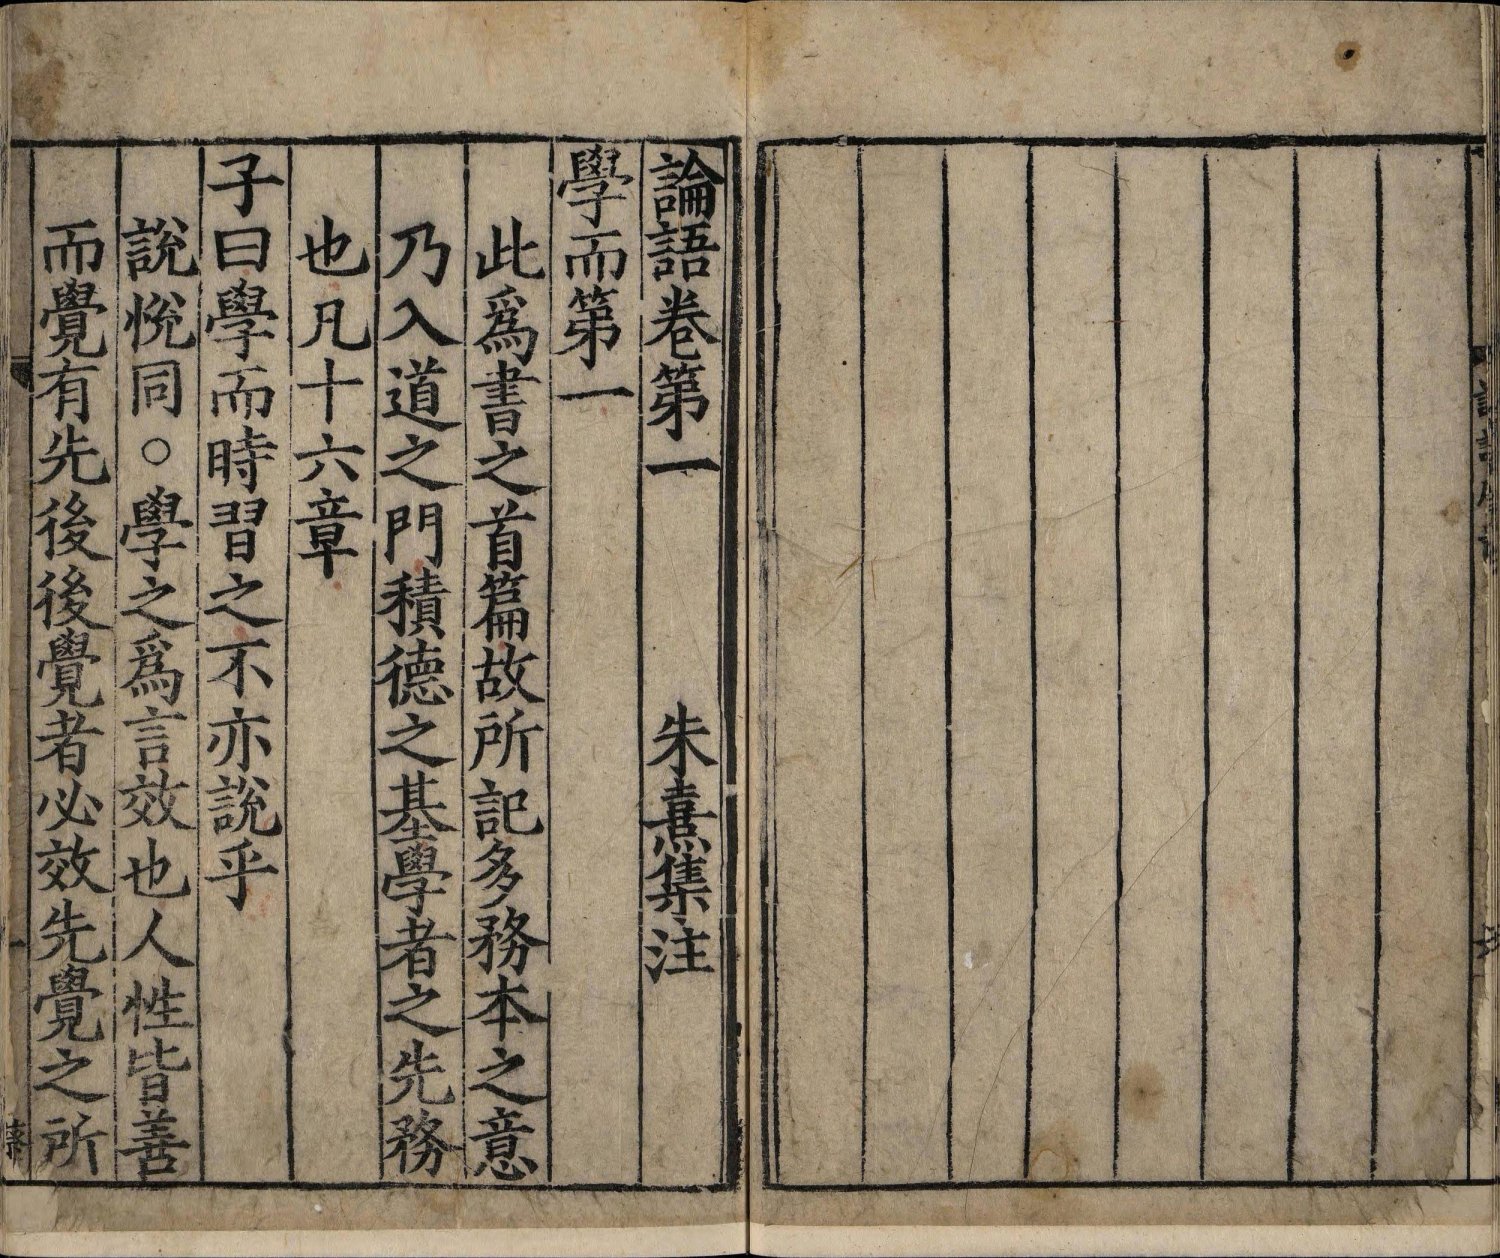 論語卷第一　朱熹集注
學而第一
此爲書之首篇故所記多務本之意
乃入道之門積德之基學者之先務
也凡十六章
子曰學而時習之不亦說乎
說悅同○學之爲言效也人性皆善
而覺有先後後覺者必效先覺之所